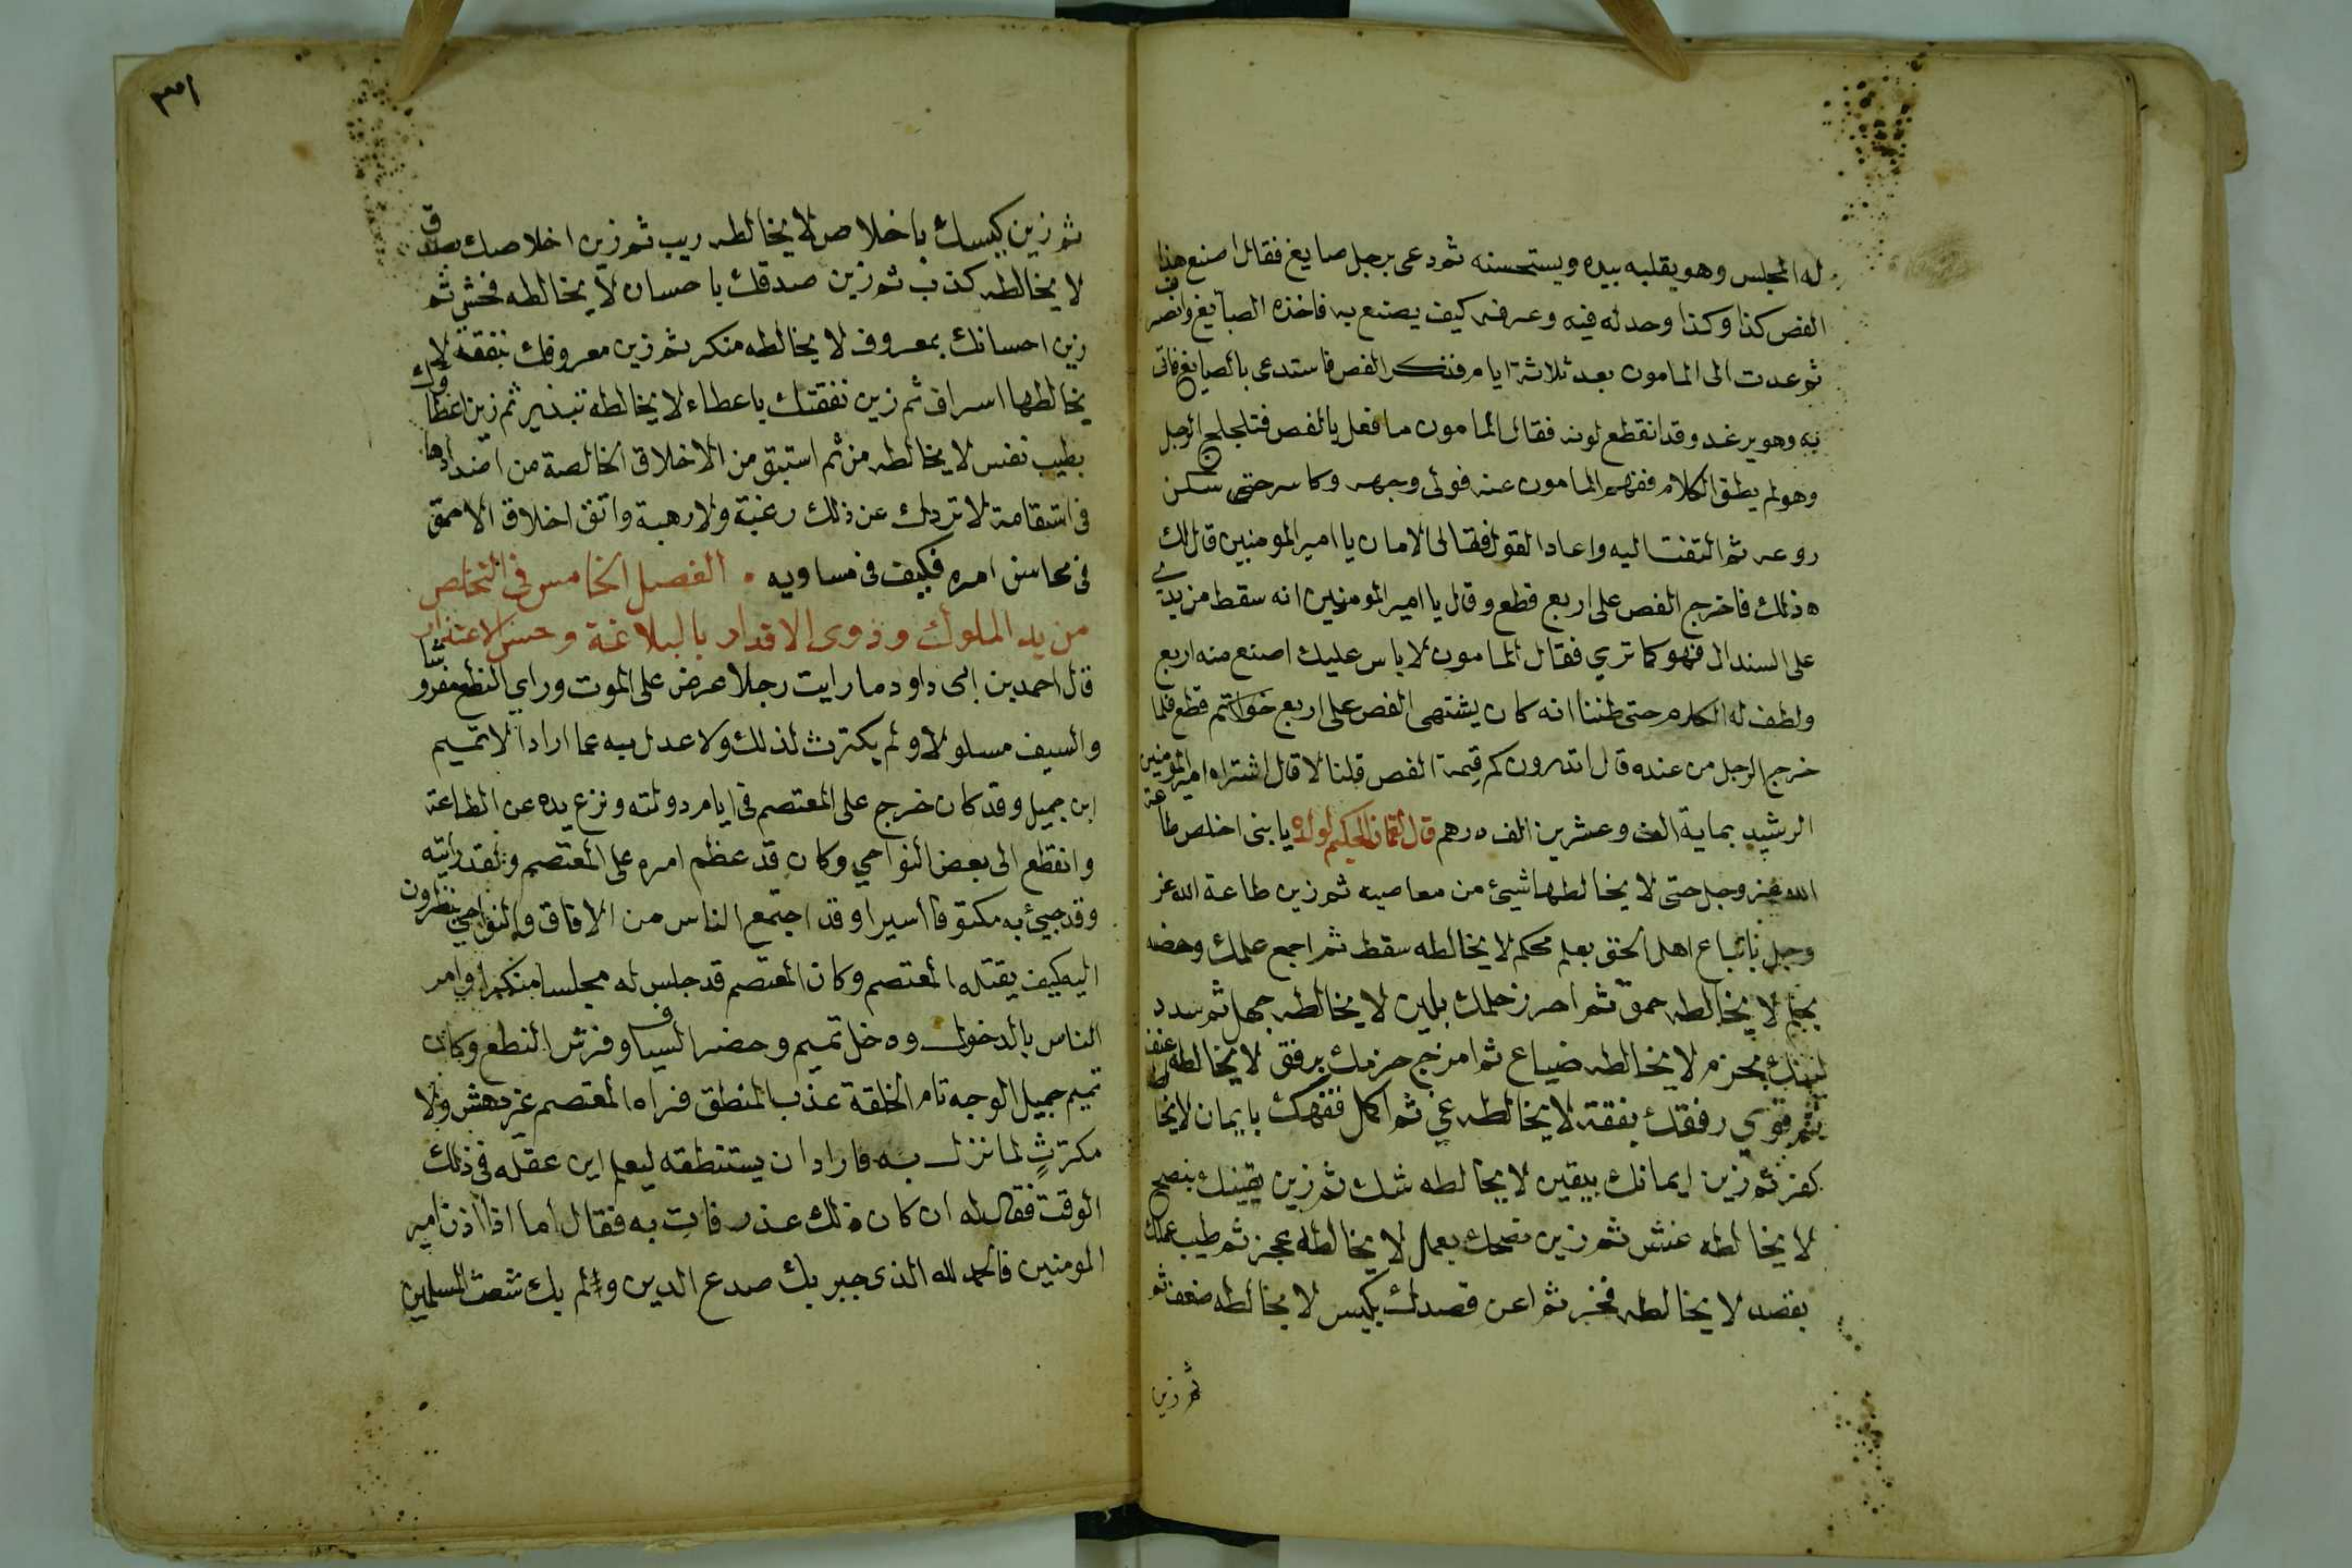 له المجلس وهو يقلبه بيده ويستحسنه ثم دعى برجل صايغ فقال اصنع هذا
الفص كذا وكذا وحد له فيه وعرفه كيف يصنع به فاخذه الصايغ وانصرف
ثم عدت الى المامون بعد ثلاثة ايام فتذكر الفص فاستدعى بالصايغ فاتى
به وهو يرعد وقد انقطع لونه فقال المامون ما فعل بالفص فتلجلج الرجل
وهو لم يطق الكلام ففهم المامون عنه فولى وجهه وكاسر حتى سكن
روعه ثم التفت اليه واعاد القول فقال الامان يا امير المومنين قال لك
ذلك فاخرج الفص على اربع قطع وقال يا امير المومنين انه سقط من يدي
على السندال فهو كما تري فقال المامون لا باس عليك اصنع منه اربع
ولطف له الكلام حتى ظننا انه كان يشتهى الفص على اربع خواتم قطع فلما
خرج الرجل من عنده قال اتدرون كم قيمة الفص قلنا لا قال اشتراه امير المومنين
الرشيد بماية الف وعشرين الف درهم قال لقمان الحكيم لولده يا بنى اخلص طاعة
الله عز وجل حتى لا يخالطها شيئ من معاصيه ثم زين طاعة الله عز
وجل باتباع اهل الحق بعلم محكم لا يخالطه سقط ثم اجمع علمك وحضه
بحلم لا يخالطه حمق ثم احرز حلمك بلين لا يخالطه جهل ثم سدد
لينك بحزم لا يخالطه ضياع ثم امزج حزمك برفق لا يخالطه عنف
ثم قوي رفقك بفقه لا يخالطه عي ثم اكمل فقهك بايمان لا يخالطه
كفر ثم زين ايمانك بيقين لا يخالطه شك ثم زين يقينك بنصح
لا يخالطه غش ثم زين نصحك بعمل لا يخالطه عجز ثم طيب عملك
بقصد لا يخالطه فخر ثم اعن قصدك بكيس لا يخالطه ضعف ثم
ثم زين
٣٣١
ثم زين كيسك باخلاص لا يخالطه ريب ثم زين اخلاصك بصدق
لا يخالطه كذب ثم زين صدقك باحسان لا يخالطه فحش ثم
زين احسانك بمعروف لا يخالطه منكر ثم زين معروفك بنفقة لا
يخالطها اسراف ثم زين نفقتك باعطاء لا يخالطه تبذير ثم زين اعطاوك
بطيب نفس لا يخالطه من ثم استبق من الاخلاق الخالصة من اضدادها
فى استقامة لا تردك عن ذلك رغبة ولا رهبة واتق اخلاق الاحمق
فى محاسن امره فكيف فى مساويه • الفصل الخامس فى التخلص
من يد الملوك وذوى الاقدار بالبلاغة وحسن الاعتذار
قال احمد بن ابى داود ما رايت رجلا عرض على الموت وراي النطع مفروشا
والسيف مسلولا ولم يكترث لذلك ولا عدل به عما اراد الا تميم
ابن جميل وقد كان خرج على المعتصم فى ايام دولته ونزع يده عن الطاعة
وانقطع الى بعض النواحي وكان قد عظم امره على المعتصم ولقد رايته
وقد جيئ به مكتوفا اسيرا وقد اجتمع الناس من الافاق والنواحي ينظرون
اليه كيف يقتله المعتصم وكان المعتصم قد جلس له مجلسا منكرا وامر
الناس بالدخول ودخل تميم وحضر السياف وفرش النطع وكان
تميم جميل الوجه تام الخلقة عذب المنطق فراه المعتصم غير دهش ولا
مكترثٍ لما نزل به فاراد ان يستنطقه ليعلم اين عقله فى ذلك
الوقت فقال له ان كان ذلك عذر فات به فقال اما اذا اذن امير
المومنين فالحمد لله الذى جبر بك صدع الدين ولم بك شعث المسلمين